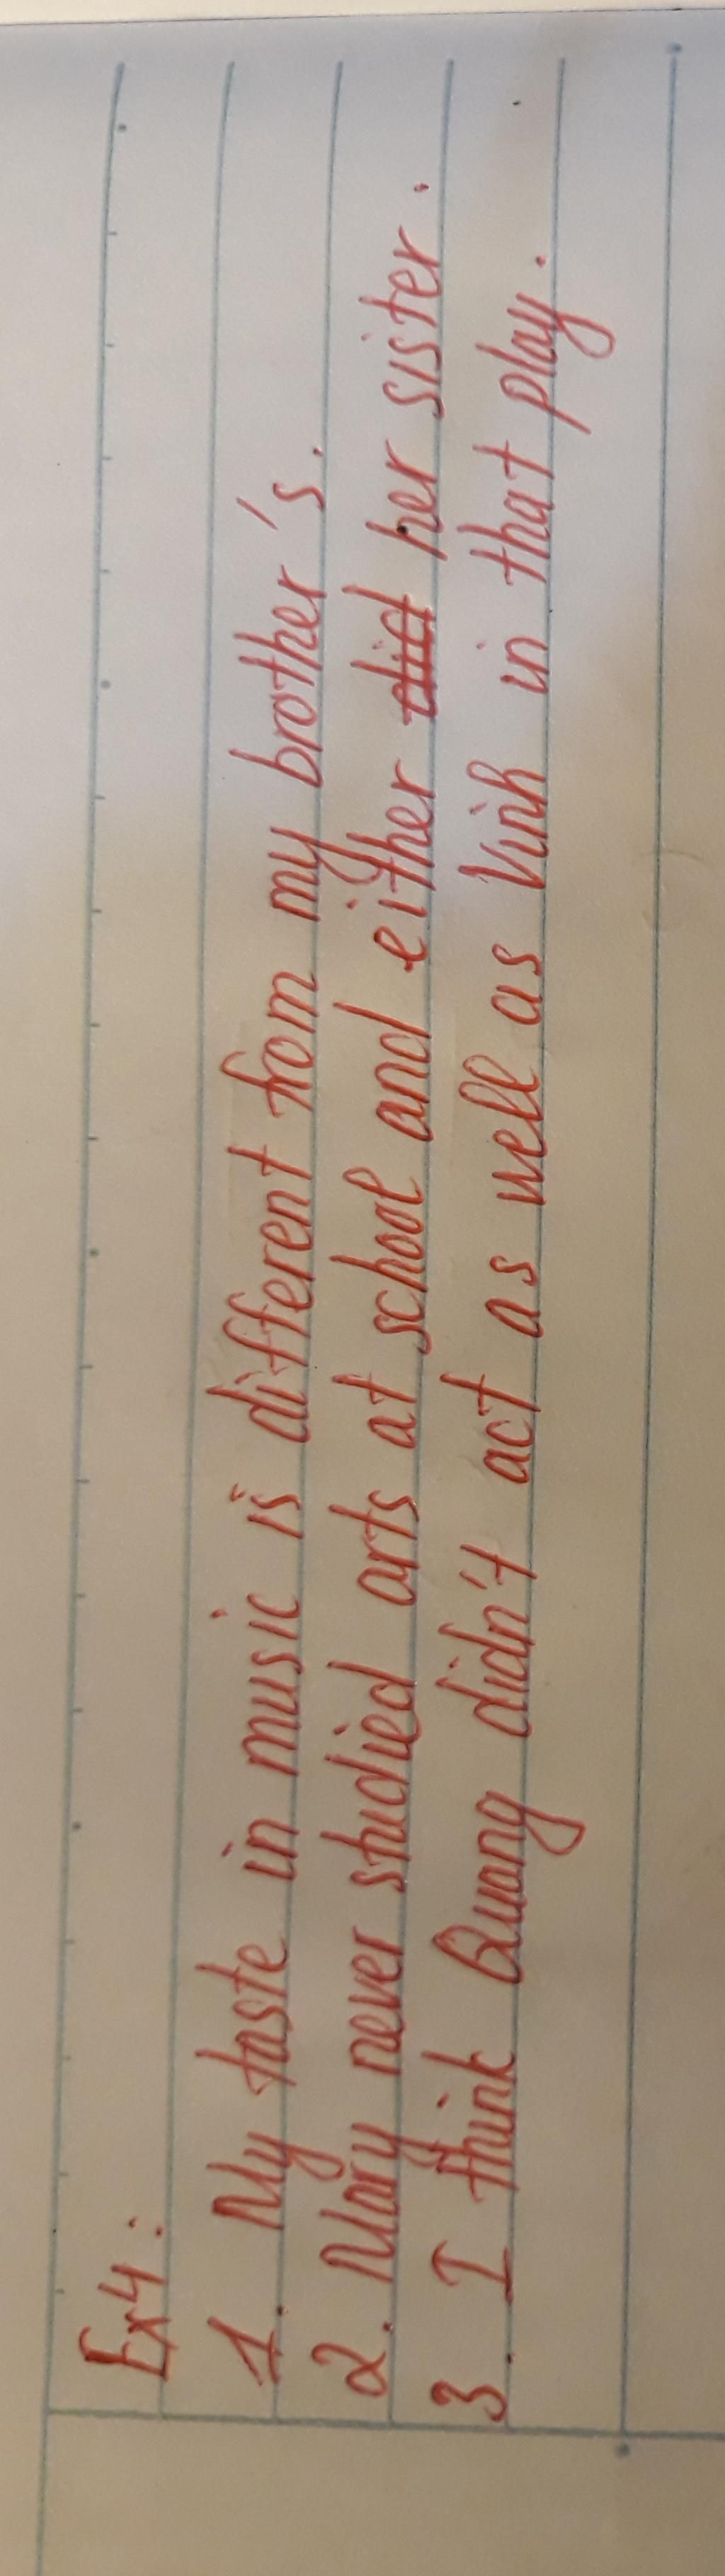 Ex4:
1. My taste in music is different from my brother's.
2. Mary never studied arts at school and either did her sister.
3. I think Quang didn't act as well as Vinh in that play.